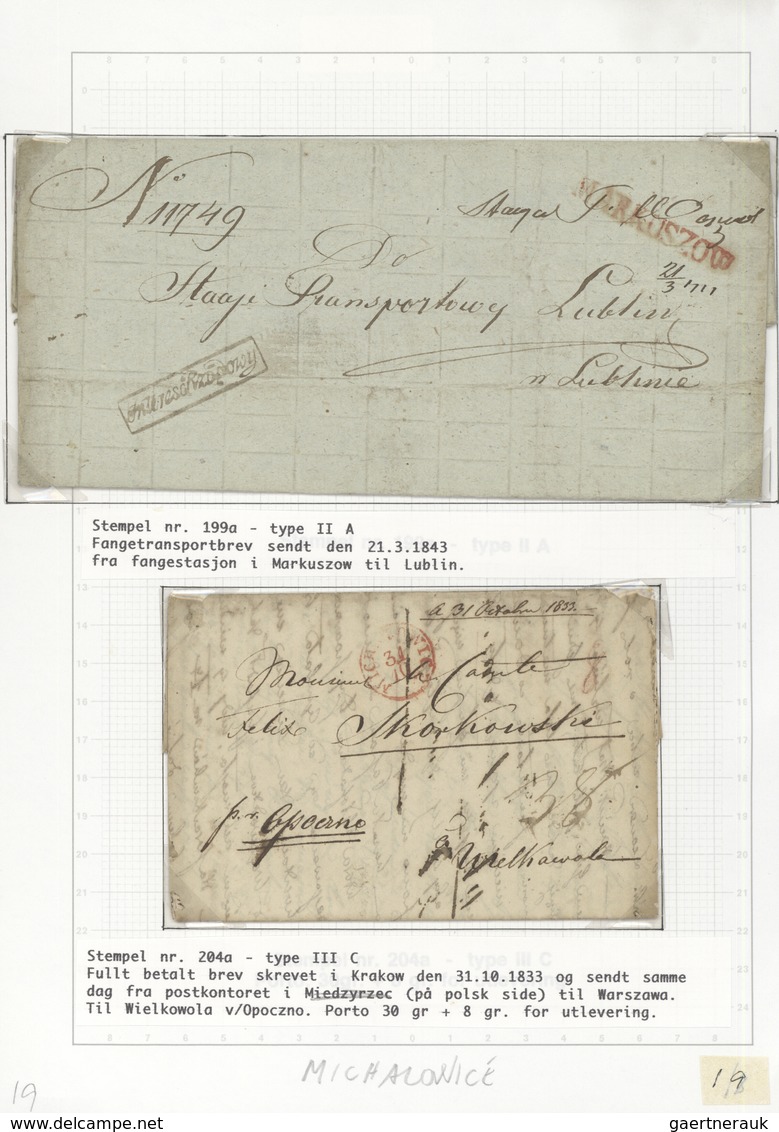 No 11749
MARKUSZOW
Do
21/3
Staaji Transportowy Lublin
w Lublinie
Stempel nr. 199a - type II A
Fangetransportbrev sendt den 21.3.1843
fra fangestasjon i Markuszow til Lublin.
a 31 Octobre 1833.
31
10
Monsieur le Comte
Felix Skorkowski
38
pr. Opoczno
à Wielkawola
Stempel nr. 204a - type III C
Fullt betalt brev skrevet i Krakow den 31.10.1833 og sendt samme
dag fra postkontoret i Miedzyrzec (på polsk side) til Warszawa.
Til Wielkowola v/Opoczno. Porto 30 gr + 8 gr. for utlevering.
MICHALOWICE
19
19
gaertnerauk